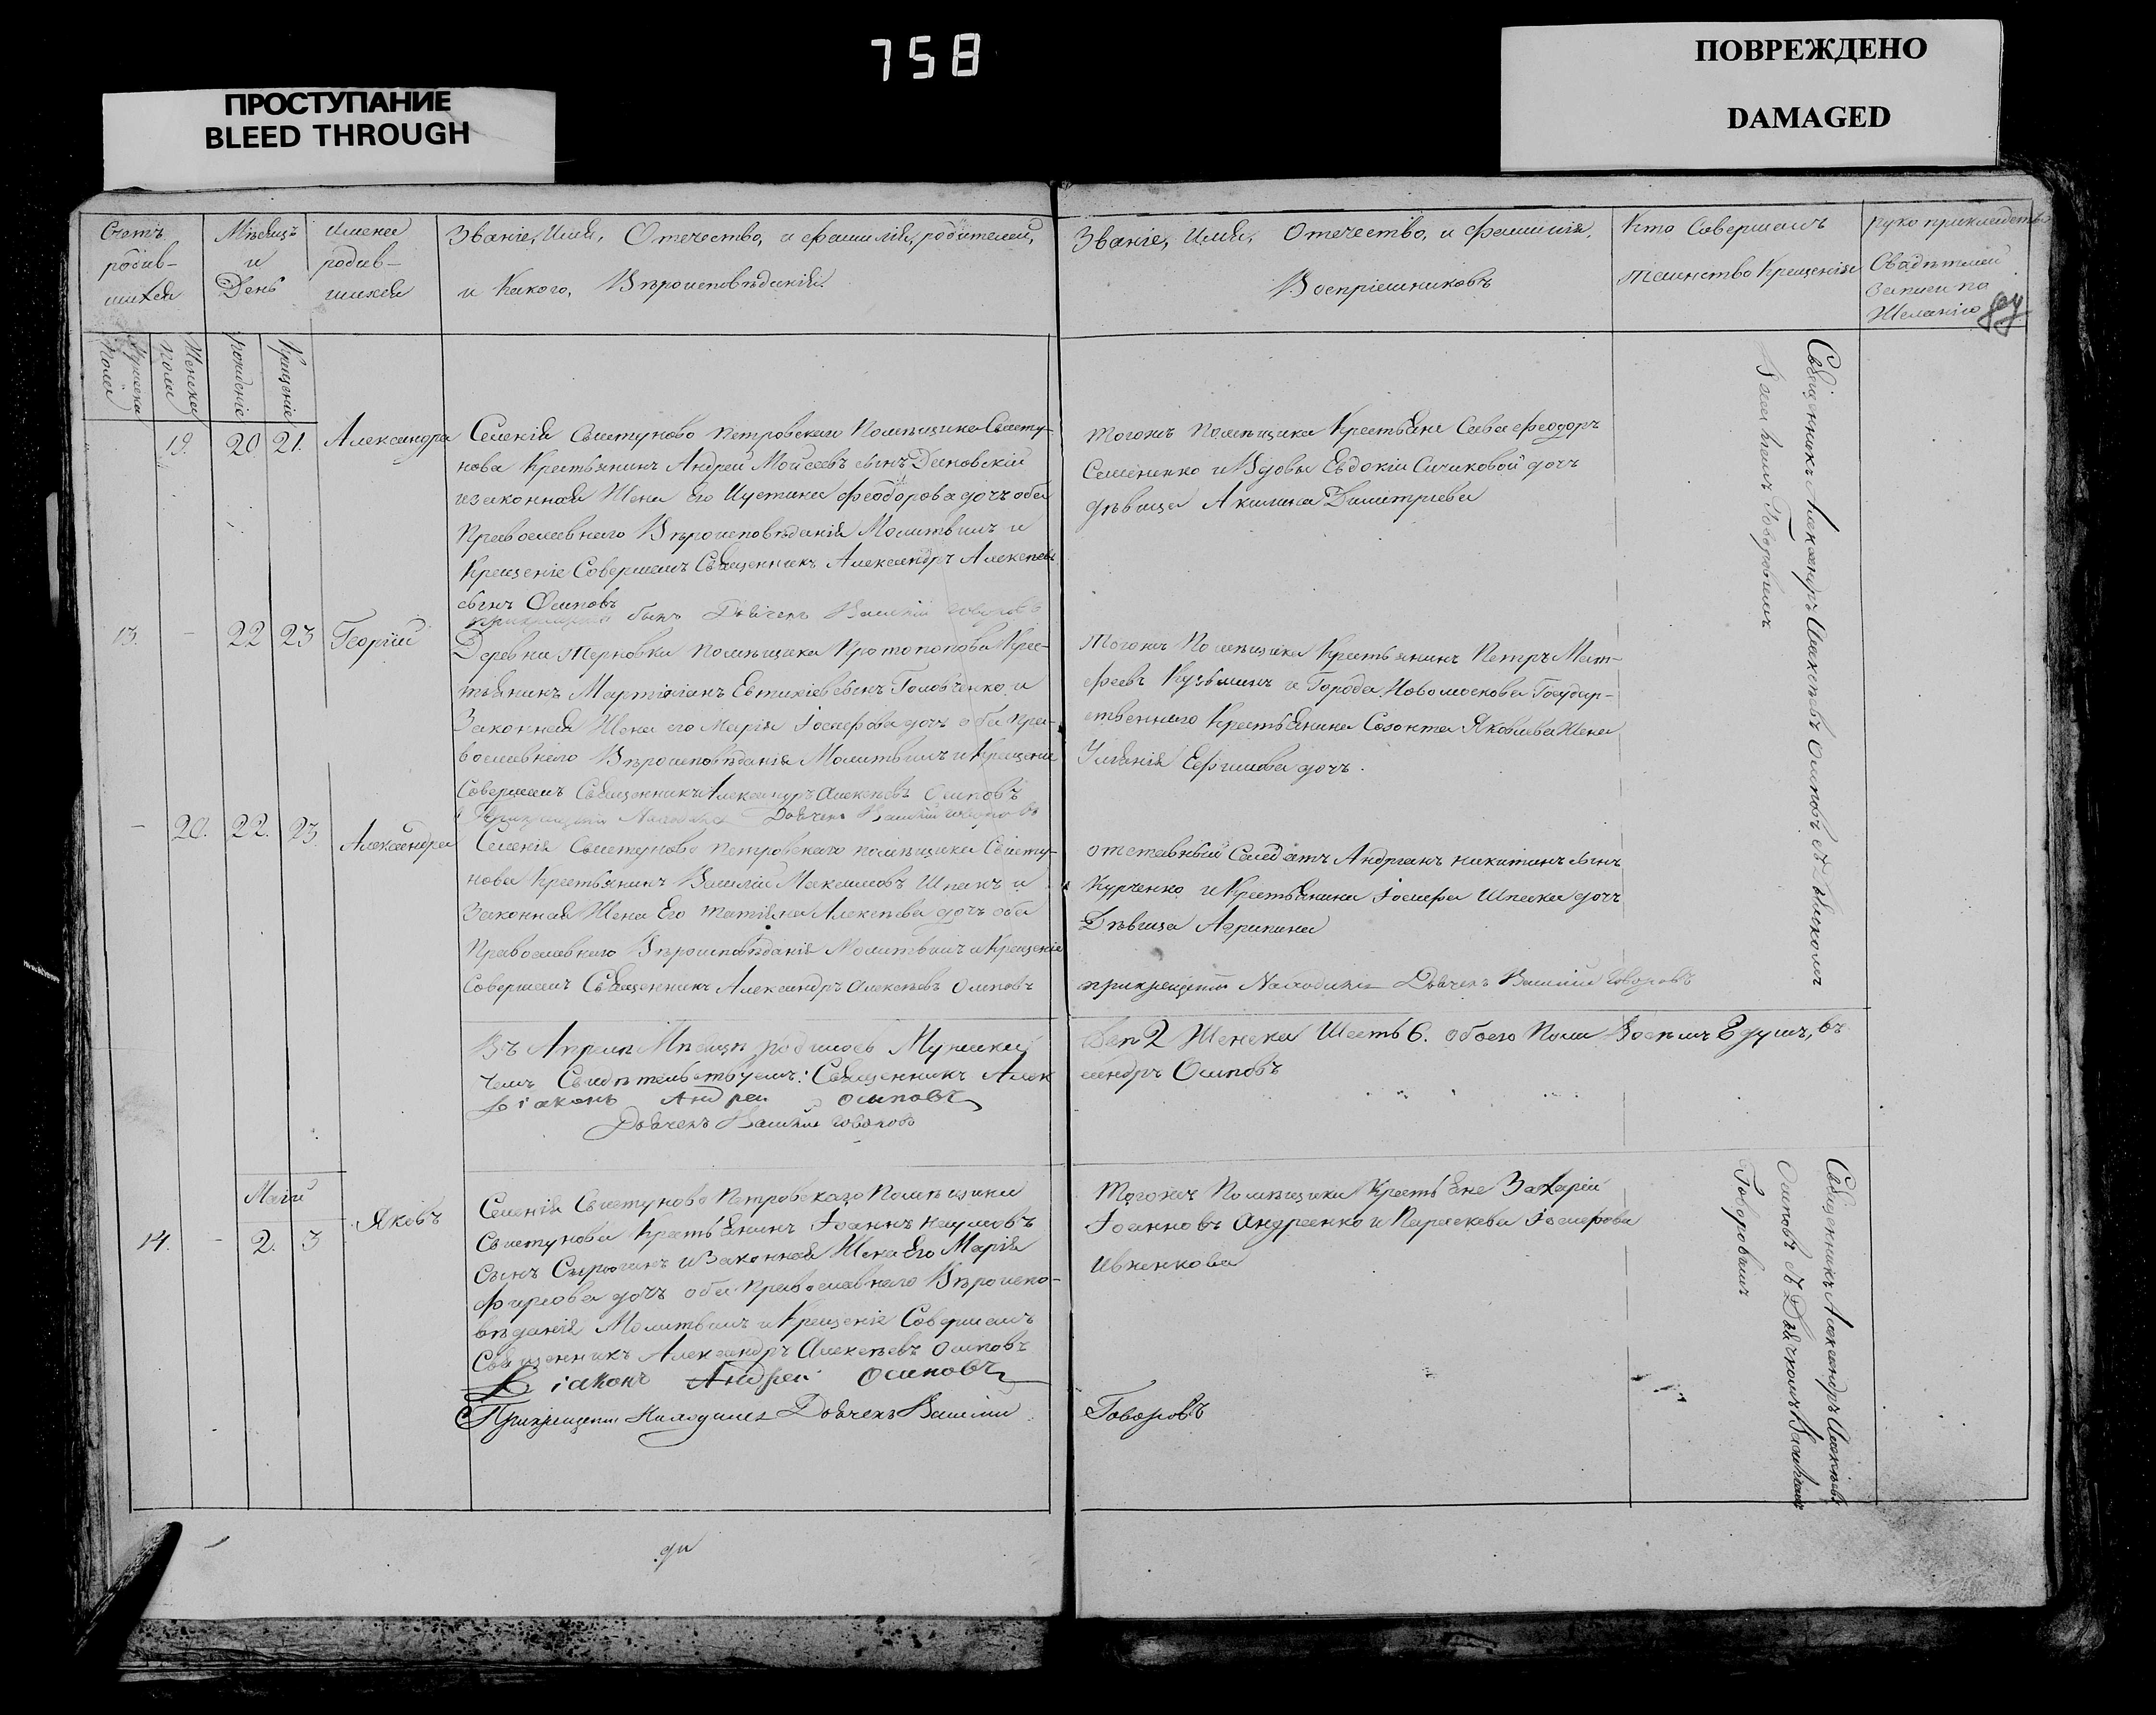 758
ПРОСТУПАНИЕ
BLEED THROUGH
ПОВРЕЖДЕНО
DAMAGED
Счетъ родив-шихся
Мѣсяцъ и День
Имена родив-шихся
Званіе, Имя, Отечество, и фамилія, родителей,
и Какого, Вѣроисповѣданія.
Званіе, Имя, Отечество, и фамилія,
Воспріемниковъ
Кто Совершалъ
таинство Крещенія
руко прикладств
Свидѣтелей
Записи по
Желанію
Мужеска Полеи
Женска Полеи
рожденіе
Крещеніе
19. 20 21. Александра
Селенія Свистуново Петровскаго Помѣщика Свисту-
нова Крестьянинъ Андрей Моисеевъ сынъ
изаконная Жена Его Иустина Феодорова дочъ оба
Православнаго Вѣроисповѣданія Молитвилъ и
Крещеніе Совершалъ Священникъ Александръ Алексѣевъ
сынъ Осиповъ
былъ Дьячекъ Василій Говоровъ
тогожъ Помѣщика Крестьяне Сава Феодоръ
Семененко и Вдовы Евдокіи Сичиковой дочъ
дѣвица Акилина Димитріева
13. - 22 23 Георгій
Деревни Терновки Помѣщика Протопопова Крес-
тьянинъ Мартиніанъ Евтихіевъ сынъ Головченко и
Законная Жена его Марія Іосифова дочъ оба Пра-
вославнаго Вѣроисповѣданія Молитвилъ и Крещеніе
Совершалъ Священникъ Александръ Алексѣевъ Осиповъ
Дьячекъ Василій Говоровъ
Тогожъ Помѣщика Крестьянинъ Петръ Мат-
феевъ Кузьминъ и Города Новомосковска Государ-
ственнаго Крестьянина Созонта Яковлева Жена
Уліянія Ефимова дочъ.
- 20. 22. 23. Александра
Селенія Свистуново Петровскаго помѣщика Свисту-
нова Крестьянинъ Василій Максимовъ Шпакъ и
Законная Жена Его татіяна Алексѣева дочъ оба
Православнаго Вѣроисповѣданія Молитвилъ и Крещеніе
Совершалъ Священникъ Александръ Алексѣевъ Осиповъ
отставный Солдатъ Андріанъ никитинъ сынъ
Курченко и Крестьянина Іосифа Шпака дочъ
Дѣвица Агрипина
прикрещеніи Находился Дьячекъ Василій Говоровъ
Священникъ Александръ Алексѣевъ Осиповъ съ Дьячкомъ
Василіемъ Говоровымъ
Въ Апрѣлѣ Мѣсяцѣ родилось Мужска
2 Женска Шесть 6. обоего Пола Восемь 8 душъ, въ
чемъ Свидѣтельствуемъ: Священникъ Алек
сандръ Осиповъ
Діаконъ Андрей Осиповъ
Дьячекъ Василій Говоровъ
Маій
14. - 2. 3 Яковъ
Селенія Свистуново Петровскаго Помѣщика
Свистунова Крестьянинъ Іоаннъ наумовъ
Сынъ Сыроганъ и Законная Жена Его Марія
Фирсова дочъ оба Православнаго Вѣроиспо-
вѣданія Молитвилъ и Крещеніе Совершалъ
Священникъ Александръ Алексѣевъ Осиповъ
Діаконъ Андрей Осиповъ
Прикрещеніи Находился Дьячекъ Василій
Тогожъ Помѣщика Крестьяне Захарій
Іоанновъ Андреенко и Параскева Іосифова
Ивженкова
Говоровъ
Священникъ Александръ Алексѣевъ
Осиповъ съ Дьячкомъ Василіемъ
Говоровымъ